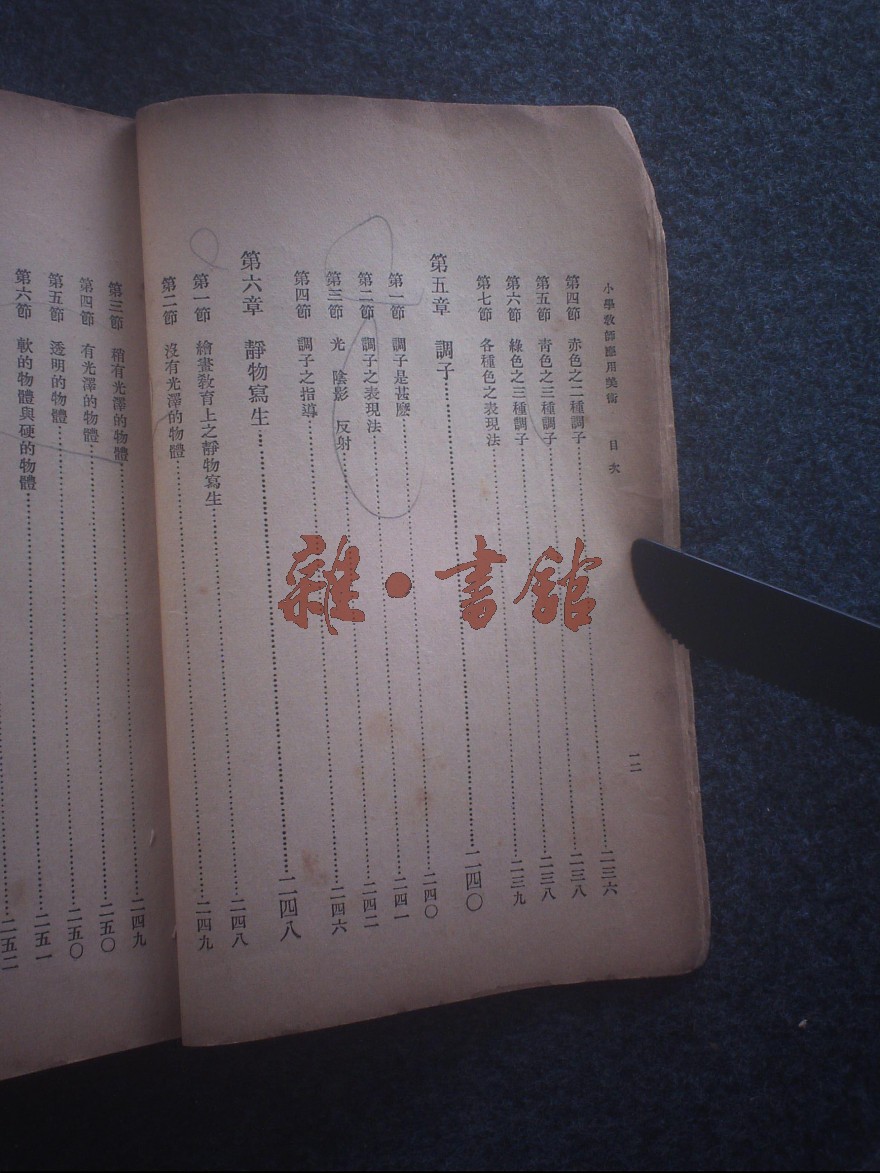 小學敎師應用美術 目次 一二
第四節 赤色之二種調子……二三六
第五節 靑色之三種調子……二三八
第六節 綠色之三種調子……二三八
第七節 各種色之表現法……二三九
第五章 調子……二四〇
第一節 調子是甚麽……二四〇
第二節 調子之表現法……二四一
第三節 光 陰影 反射……二四二
第四節 調子之指導……二四六
第六章 靜物寫生……二四八
第一節 繪畫敎育上之靜物寫生……二四八
第二節 沒有光澤的物體……二四九
第三節 稍有光澤的物體……二四九
第四節 有光澤的物體……二五〇
第五節 透明的物體……二五〇
第六節 軟的物體與硬的物體……二五一
……二五二
雜・書館